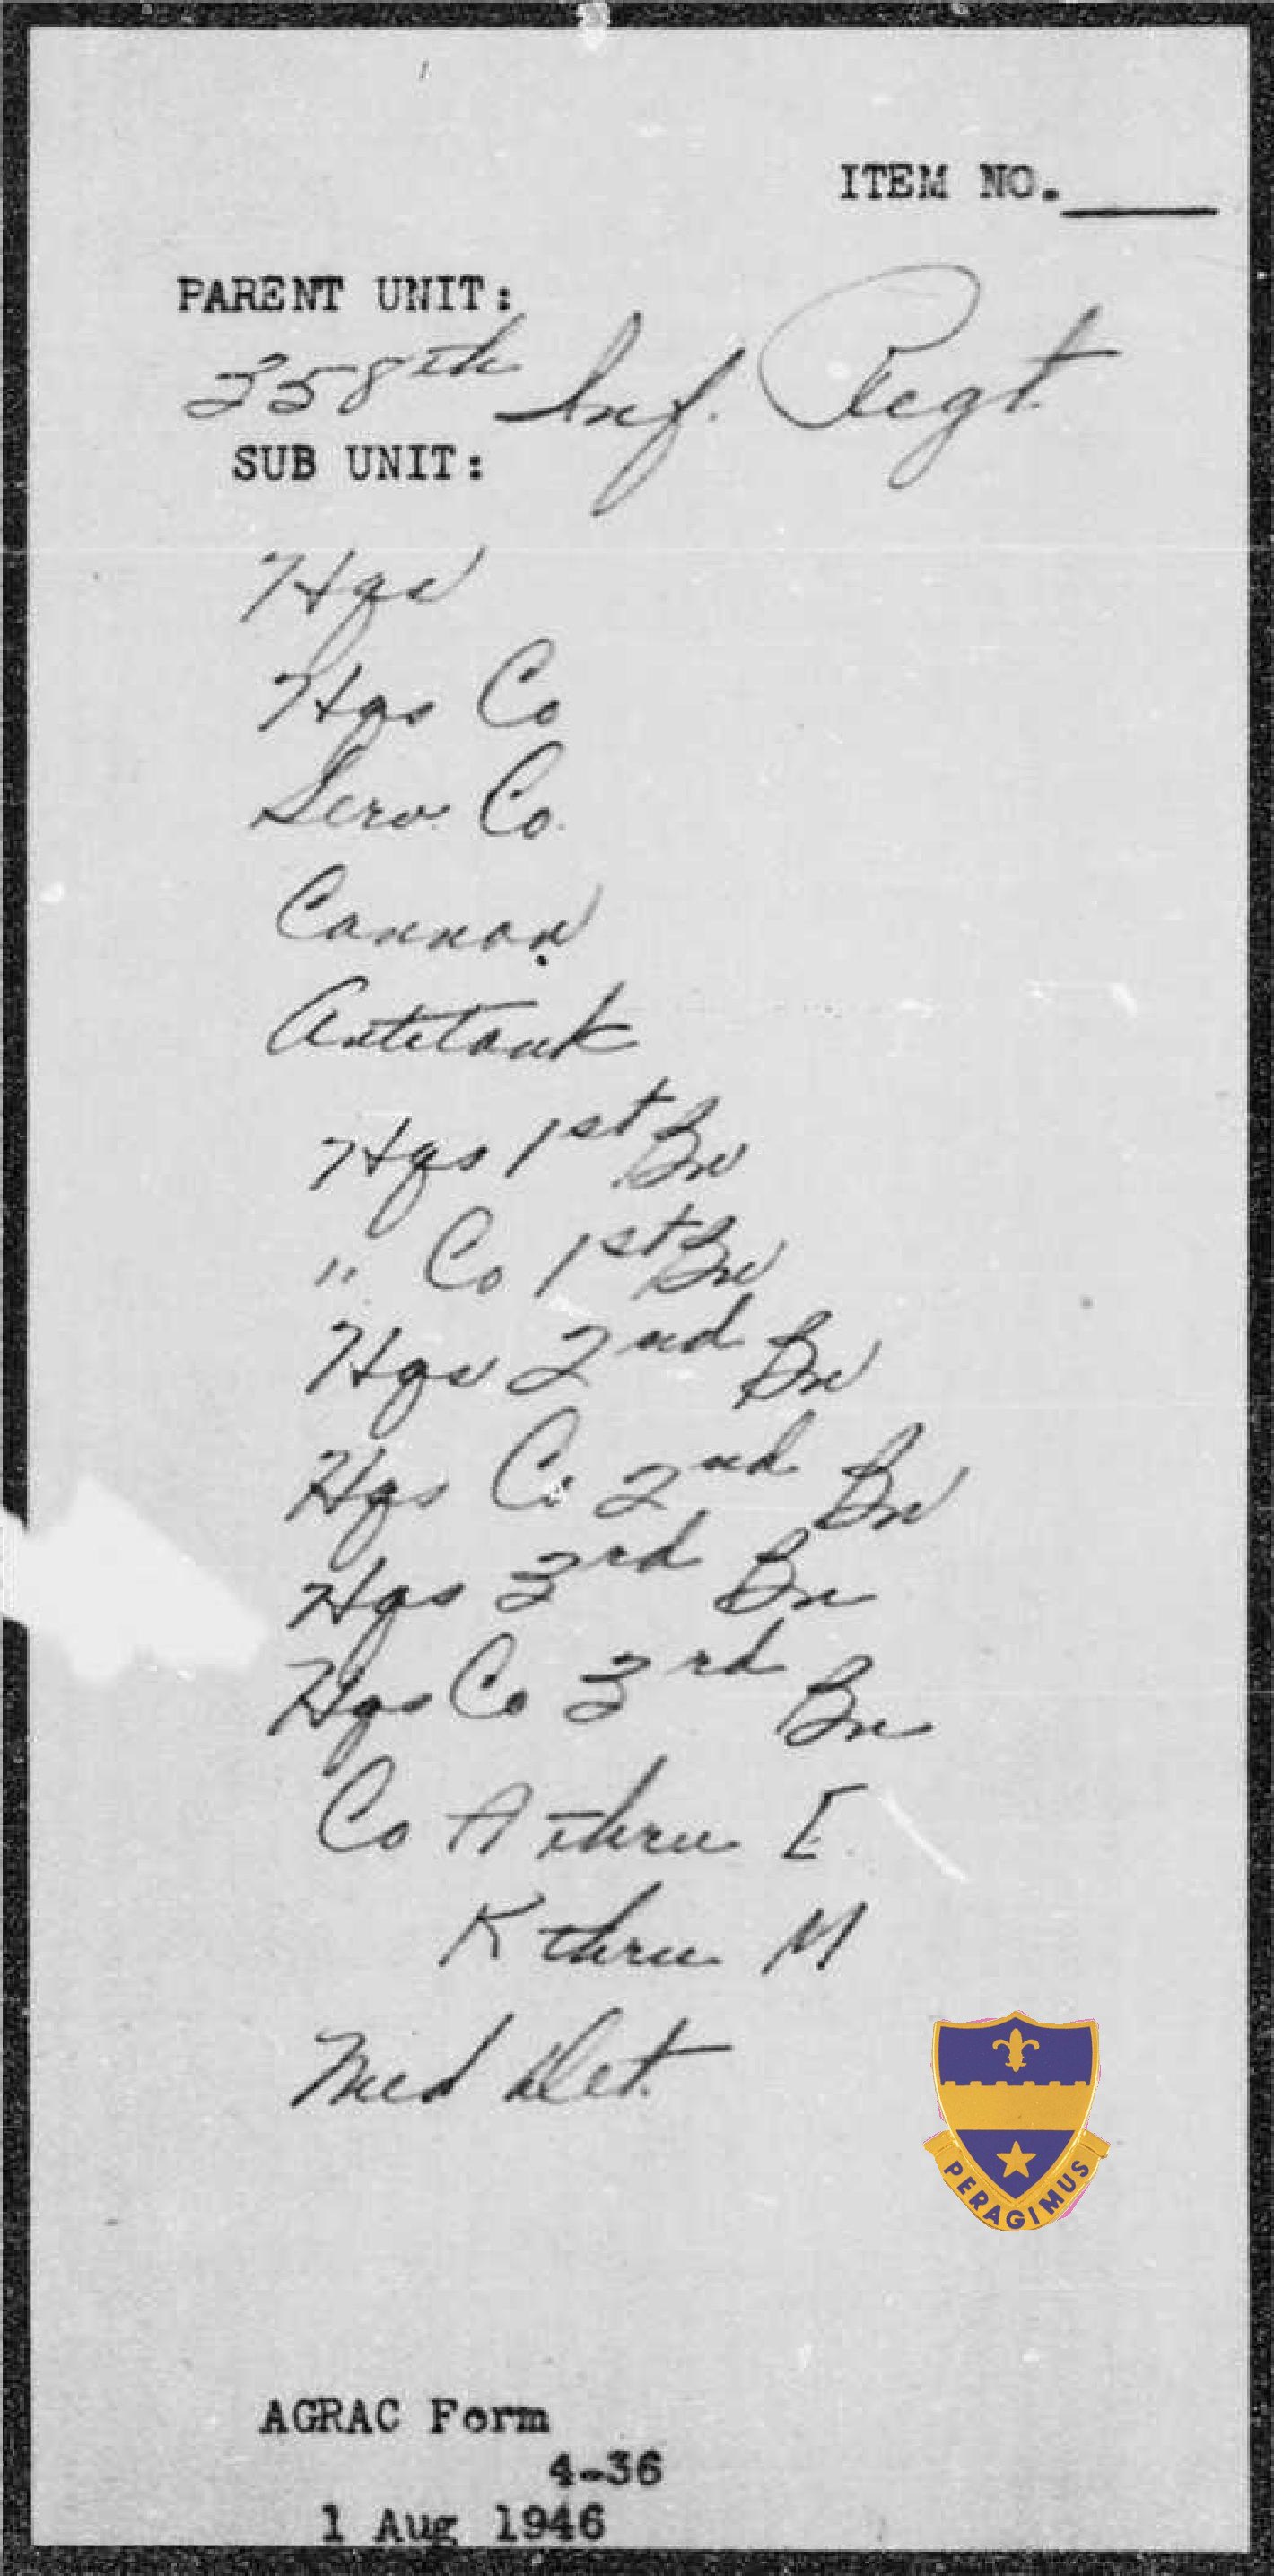 ITEM NO.____
PARENT UNIT:
358th Inf. Regt.
SUB UNIT:
Hqs
Hqs Co
Serv. Co.
Cannon
Antitank
Hqs 1st Bn
" Co 1st Bn
Hqs 2nd Bn
Hqs Co 2nd Bn
Hqs 3rd Bn
Hqs Co 3rd Bn
Co A thru I
K thru M
Med Det.
PERAGIMUS
AGRAC Form
4-36
1 Aug 1946